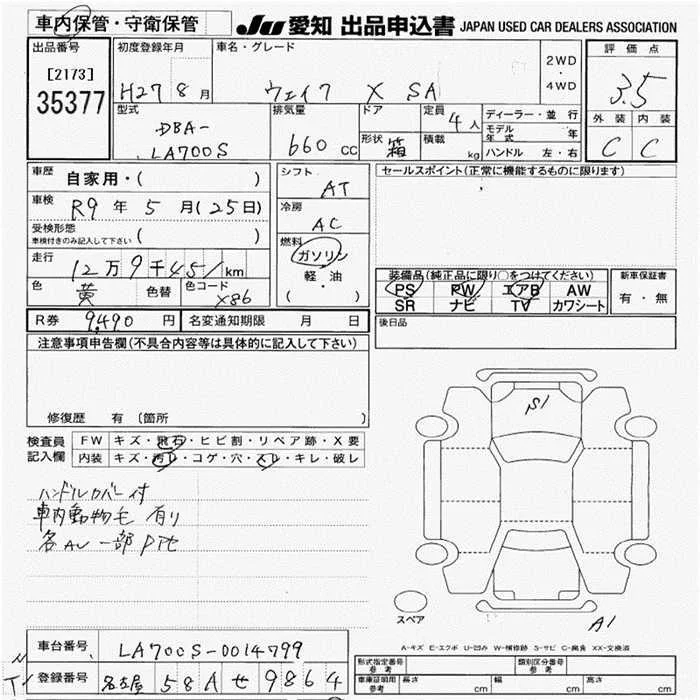 車内保管・守衛保管 JU 愛知 出品申込書 JAPAN USED CAR DEALERS ASSOCIATION
出品番号 初度登録年月 車名・グレード 2WD ・ 4WD 評価点
[2173] 35377 H27 8月 ウェイク X SA 3.5
型式 排気量 ドア 定員 4人 ディーラー・並行 外装 内装
DBA-LA700S 660cc 形状 箱 積載 kg モデル年式 年 C C
ハンドル 左・右
車歴 自家用・( ) シフト AT セールスポイント(正常に機能するものに限ります)
車検 R9年5月(25日) 冷房 AC
受検形態 車検付きのみ記入して下さい ( ) 燃料 ガソリン
走行 12万9千451km 軽・油 装備品(純正品に限り○をつけてください) 新車保証書
色 黄 色替 色コード X86 ・( ) PS PW エアB AW 有・無
SR ナビ TV カワシート
R券 9,490円 名変通知期限 月 日 後日品
注意事項申告欄(不具合内容等は具体的に記入して下さい)
修復歴 有 〔箇所 〕
検査員記入欄 FW キズ・飛石・ヒビ割・リペア跡・X要
内装 キズ・汚レ・コゲ・穴・スレ・キレ・破レ
S1
ハンドルカバー付
車内動物毛 有り
各AU一部
スペア
A1
A-キズ E-エクボ U-凹み W-補修跡 S-サビ C-腐食 XX-交換済
車台番号 LA700S-0014799
登録番号 名古屋 58A せ 9864
形式指定番号 参考 類別区分番号 参考
車庫証明用 参考 長さ cm 幅 cm 高さ cm